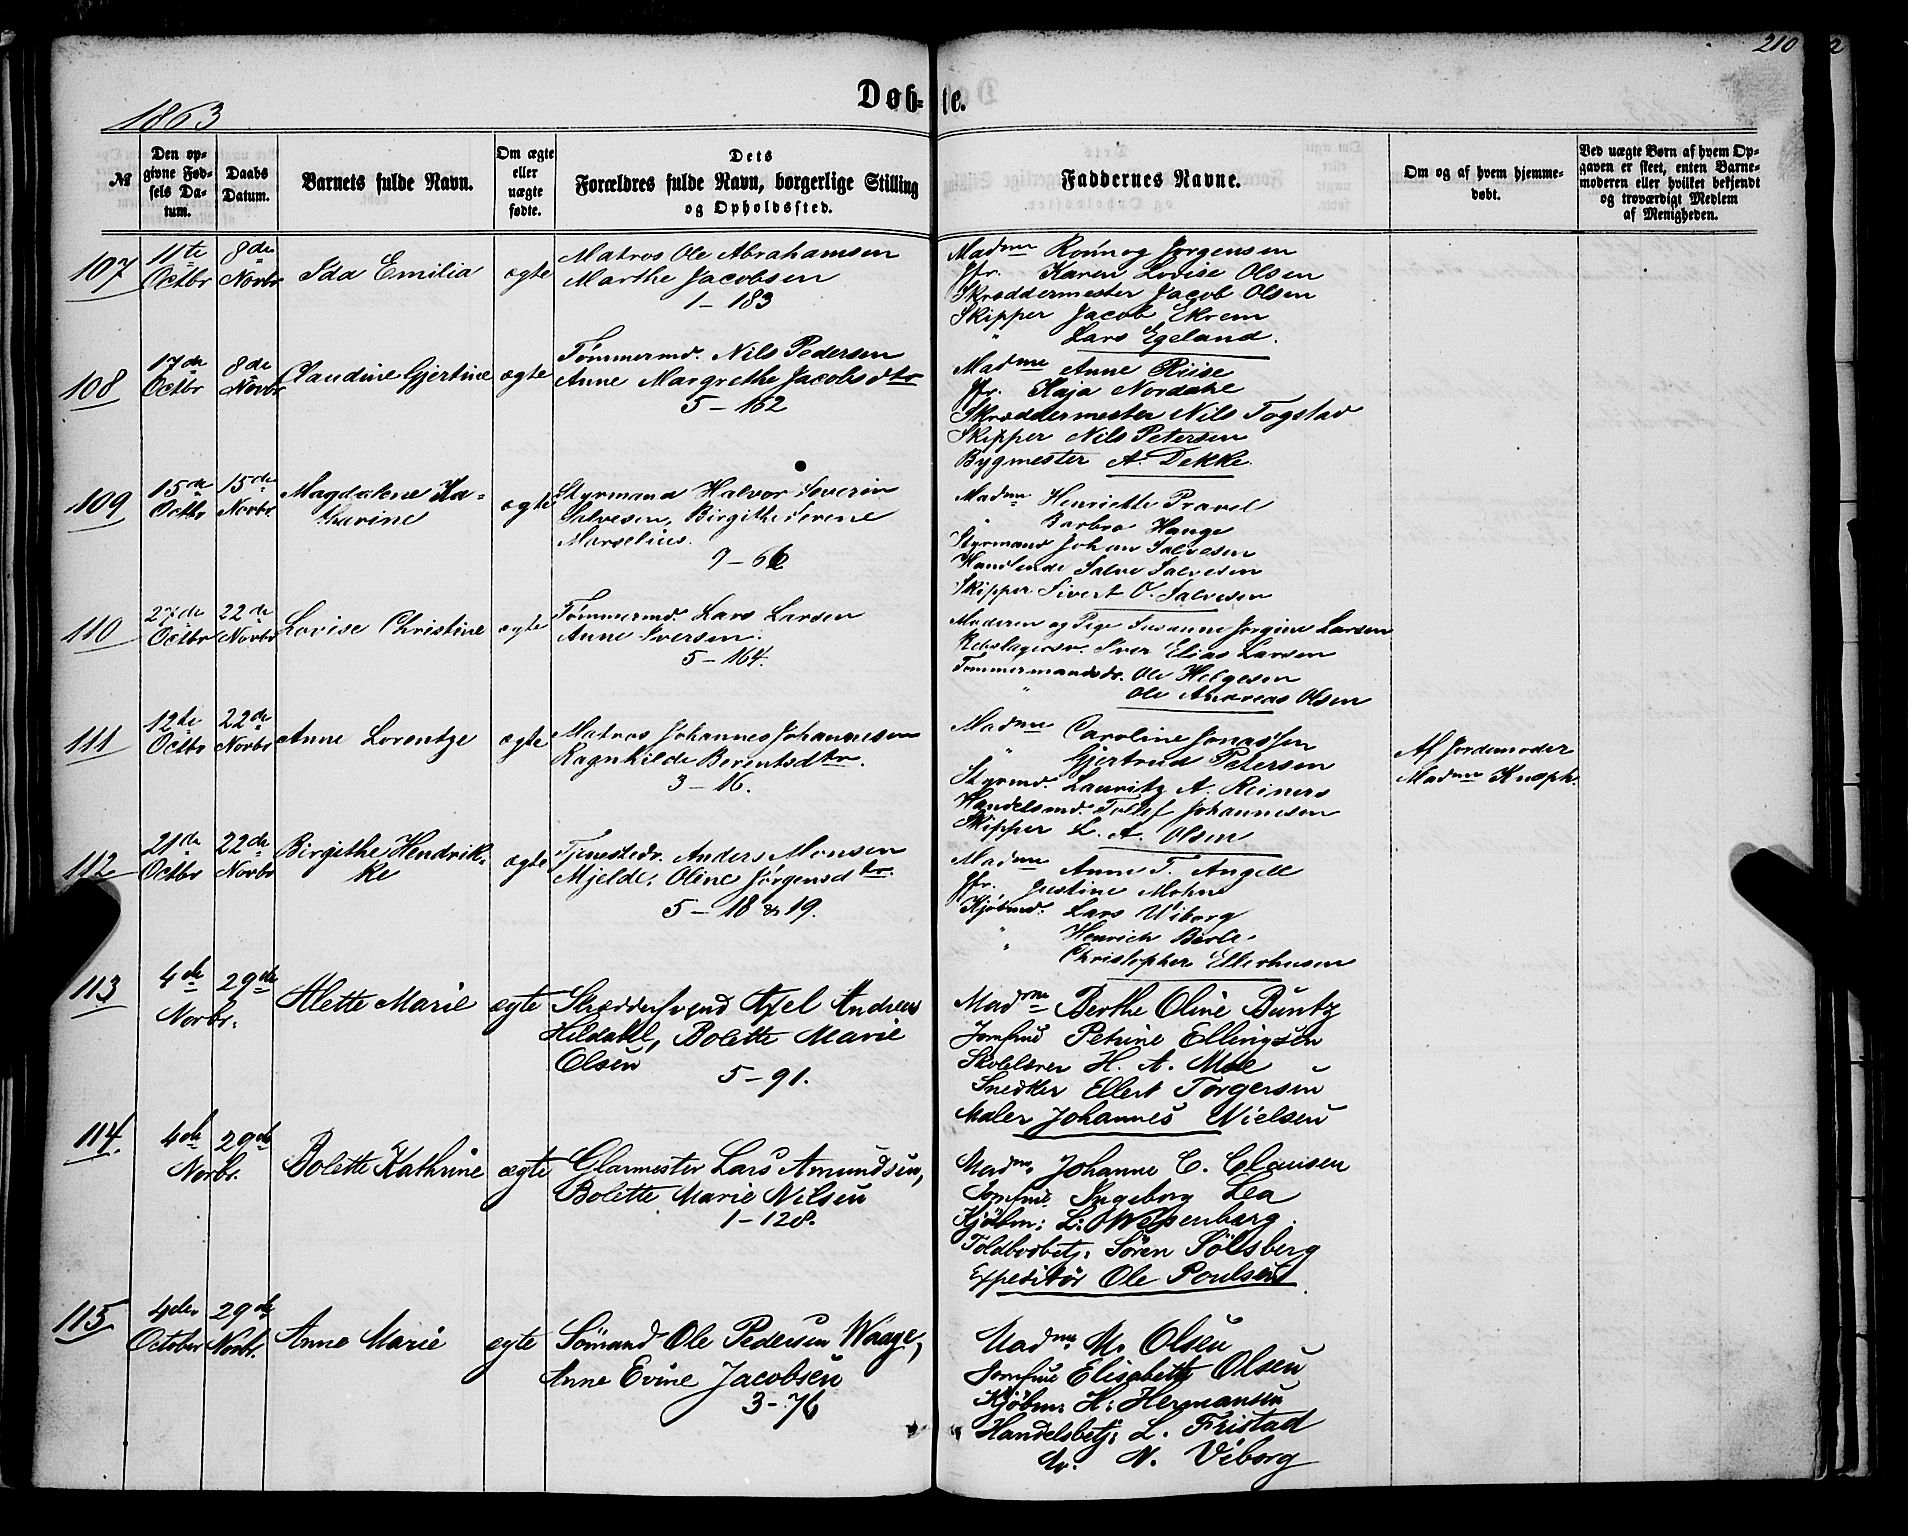 210
Døb-te.
1863
№
Den opgivne Fødsels Datum.
Daabs Datum.
Barnets fulde Navn.
Om ægte eller uægte fødte.
Dets Forældres fulde Navn, borgerlige Stilling og Opholdssted.
Faddernes Navne.
Om og af hvem hjemmedøbt.
Ved uægte Børn af hvem Opgaven er skeet, enten Barnemoderen eller hvilket bekjendt og troværdigt Medlem af Menigheden.
107
11te Octbr
8de Novbr
Ida Emilia
ægte
Matros Ole Abrahamsen
Marthe Jacobsen
1 - 183
Madme Rønnog Jørgensen
Jfr. Karen Lovise Olsen
Skræddermester Jacob Olsen
Skipper Jacob Ekrem
" Lars Egeland.
108
17de Octbr
8de Novbr
Claudine Gjertine
ægte
Tømmermd. Nils Pedersen
Anne Margrethe Jacobsdtr
5 - 162
Madme Anne Riise
Jfr. Kaja Nordahl
Skræddermester Nils Togstad
Skipper Nils Petersen
Bygmester A. Dekke.
109
15de Octbr
15de Novbr
Magdalene Ka-
tharine
ægte
Styrmand Halvor Severin
Salvesen, Birgithe Serene
Marselius.
9 - 66
Madme Henriette Pravel
Barbra Hauge
Styrmand Johan Salvesen
Handlende Salve Salvesen
Skipper Sivert O. Salvesen
110
27de Octbr
22de Novbr
Lovise Christine
ægte
Tømmermd. Lars Larsen
Anne Iversen.
5 - 164.
Moderen og Pige Susanne Jørgine Larsen
Rebslagersv. Iver Elias Larsen
Tømmermandsdr. Ole Helgesen
" Ole Andreas Olsen
111
12te Octbr
22de Novbr
Anne Lorentze
ægte
Matros Johannes Johannesen
Ragnhilde Berentsdtr.
3 - 16.
Madme Caroline Jonassen
" Gjertrud Petersen
Styrmd. Lauritz A. Reiners
Handelsmd. Tollef Johannesen
Skipper L. A. Olsen
Af Jordemoder
Madme Knoph.
112
21de Octbr
22de Novbr
Birgithe Hendrik-
ke
ægte
Tjenestedr. Anders Monsen
Mjelde, Oline Jørgensdtr.
5 - 18 & 19.
Madme Anne T. Angell
Jfr. Justine Mohn
Kjøbmd. Lars Wiborg
" Henrich Berle.
" Christopher Ellerhusen
113
4de Novbr.
29de
Alette Marie
ægte
Skræddersvend Axel Andreas
Hildahl, Bolette Marie
Olsen
5 - 91.
Madme Berthe Oline Buntz
Jomfrue Petrine Ellingsen
Skolelærer H. A. Moe
Snedker Ellert Torgersen
Maler Johannes Nielsen
114.
4de Novbr.
29de
Bolette Kathrine
ægte
Glarmester Lars Amundsen,
Bolette Marie Nilsen
1 - 128.
Madm. Johanne C. Clausen
Jomfrue Ingeborg Lea
Kjøbm: L: Wesenberg.
Toldbodbetj: Søren Solsberg
Expeditør Ole Poulsen
115
4de October
29de Novbr.
Anne Marie
ægte
Sømand Ole Pedersen Waage,
Anne Evine Jacobsen
3 - 76
Madme M. Olsen
Jomfrue Elisabeth Olsen
Kjøbm: H: Hermansen
Handelsbetj: L. Fristad
do. N. Viborg